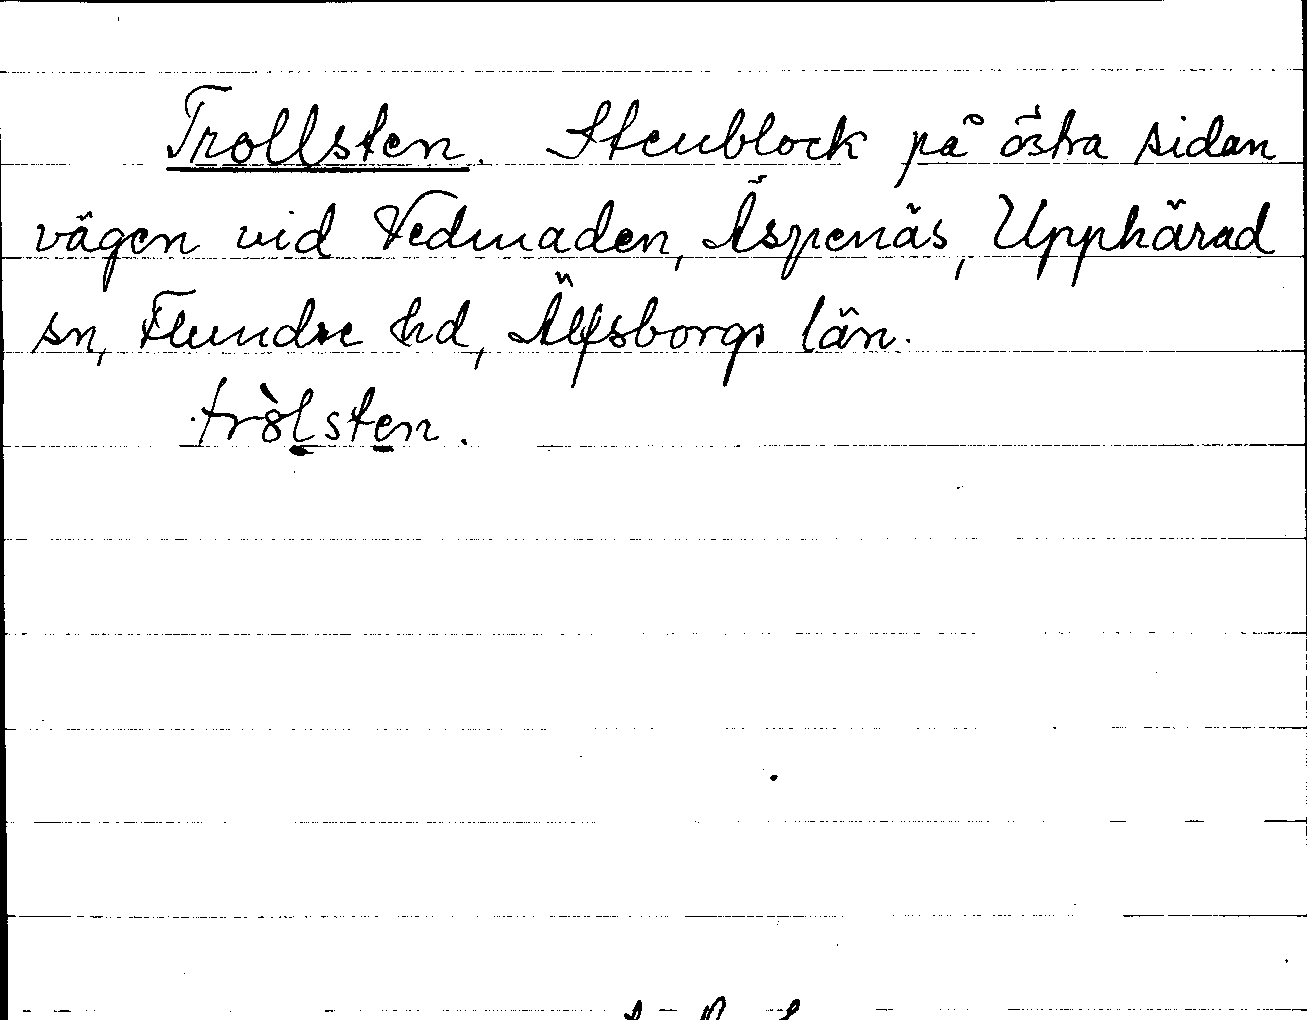 Trollsten. Stenblock på östra sidan
vägen vid Vedmaden, Äspenäs, Upphärad
sn, Flundre hd, Älfsborgs län.
tròlsten.